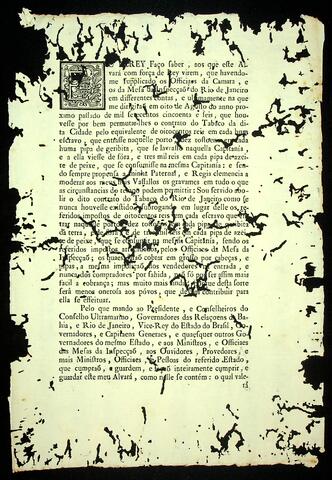 REY Faço saber, aos que este Al-
vará com força de Rey virem, que havendo-
me supplicado os Officiaes da Camara, e
os da Mesa da Inspecçaõ do Rio de Janeiro
em differentes contas, e ultimamente na que
me dirigiraõ em oito de Agosto do anno pro-
ximo passado de mil setecentos cincoenta e seis, que hou-
vesse por bem permutarlhes o contrato do Tabaco da di-
ta Cidade pelo equivalente de oitocentos reis em cada hum
escravo, que entrasse naquelle porto; dez tostoens em cada
huma pipa de geribita, que se lavrasse naquella Capitanía,
e a ella viesse de fóra, e tres mil reis em cada pipa de azei-
te de peixe, que se consumisse na mesma Capitanía; e sen-
do sempre propensa a minha Paternal, e Regia clemencia a
moderar aos meus Vassallos os gravames em tudo o que
as circunstancias do tempo podem permittir: Sou servido ha-
ver o dito contrato do Tabaco do Rio de Janeiro como se
nunca houvesse existido, subrogando em lugar delle os re-
feridos impostos de oitocentos reis em cada escravo que en-
trar naquelle porto; dez tostoens em cada pipa de geribita
da terra, e tres mil reis em cada pipa de azei-
te de peixe, que se consumir na mesma Capitanía, sendo os
referidos impostos arrecadados pelos Officiaes da Mesa da
Inspecçaõ; os quaes faraõ cobrar em grosso das cabeças, e
pipas, a mesma imposiçaõ dos vendedores por entrada, e
nunca dos compradores por sahida, naõ só por ser assim mais
facil a cobrança; mas muito mais ainda porque desta sorte
será menos oneroso aos póvos, que devem contribuir para
ella se effeituar.
Pelo que mando ao Presidente, e Conselheiros do
Conselho Ultramarino, Governadores das Relaçoens da Ba-
hia, e Rio de Janeiro, Vice-Rey do Estado do Brasil, Go-
vernadores, e Capitaens Generaes, e quaesquer outros Go-
vernadores do mesmo Estado, e aos Ministros, e Officiaes
das Mesas da Inspecçaõ, aos Ouvidores, Provedores, e
mais Ministros, Officiaes, e Pessoas do referido Estado,
que cumpraõ, e guardem, e façaõ inteiramente cumprir, e
guardar este meu Alvará, como nelle se contém: o qual vale-
rá